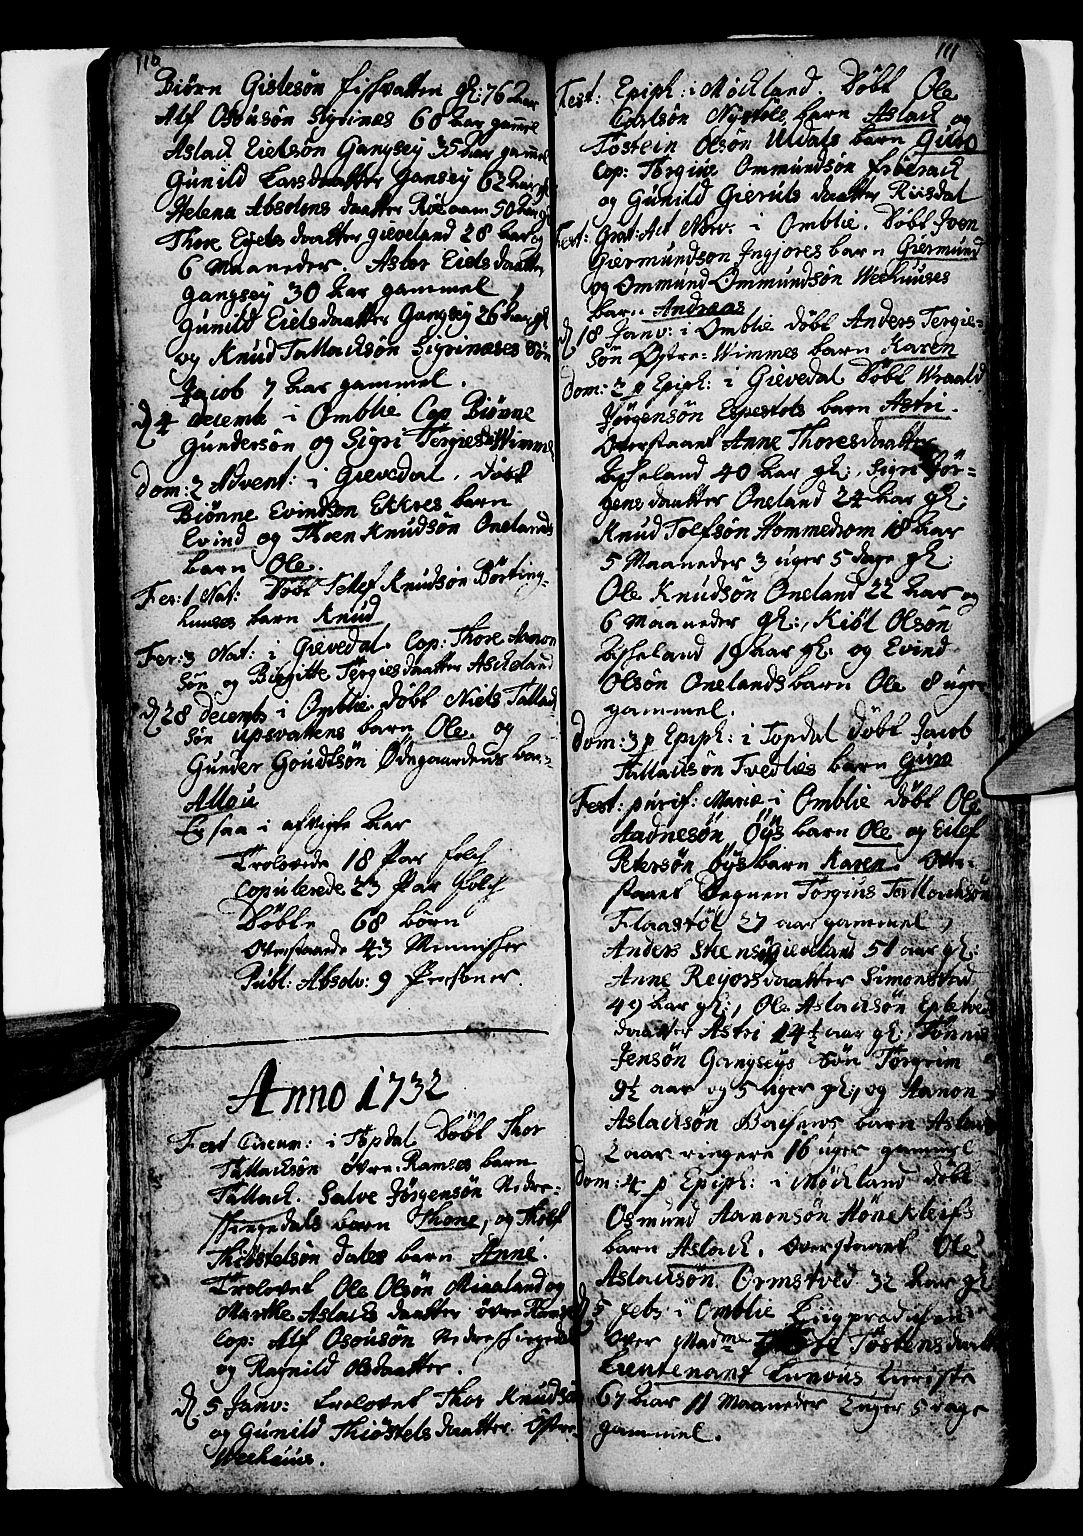 110
Biørn Gislesøn Fishvatten gl: 76 Aar
Alf Osousøn Sigrinæs 60 Aar gamel
Aslach Eielsøn Gangsey 35 Aar gamel
Gunild Larsdaatter Gansey 62 Aar gl
Helena Absolons daatter Røe 50 Aar
Thore Eyels daatter Gieveland 28 Aar og
6 Maaneder. Aslov Eiels daatter
Gangsey 30 Aar gammel
Gunild Eielsdaatter Gangsey 26 Aar gl
og Knud Tallachsøn Sigrinæses Søn
Jacob 7 Aar gammel.
D 4 decemb i Omblie Cop Biønne
Gundersøn og Sigri Tergiesd Wimme
Dom: 2 Advent: i Gievedal. Døbt
Biønne Evindsøn barn
Evind og Knudsøn Onelands
barn Ole.
Fer: 1 Nat: Døbt Tellef Knudsøn Børting-
huuses barn Knud
Fer: 3 Nat: i Gievedal. Cop: Thore Aanon
søn og Birgitte Tergiesdaatter Askeland
D 28 decemb i Omblie Døbt Niels Tallac
søn upsvattens barn Ole. og
Gunder Goudtsøn Ødegaardens bar-
Allou
Er saa i afvigte Aar
Trolovede 18 Par Folch
Copulerede 23 Par Folch
Døbte 68 børn
Overstaaede 43 Mennisker
Publ: Absolv: 9 Personer.
Anno 1732
Fest Circum: i Topdal Døbt Thor
Tallachsøn øvre-Ramses barn
Tallach. Salve Jørgensøn Nedre-
barn Thone, og
Thiøstelsøn Dales barn Anne.
Trolovet Ole Olsøn Miaaland og
Marthe Aslachs daatter øvre
Cop: Alf Osousøn Nedre
og Ragnild Olsdaatter.
D 5 Janv: Trolovet Thor Knudsøn
og Gunild Thiøstels daatter Østre-
Weehuus.
111
Fest: Epiph: i Møckland. Døbt Ole
Carlsøn Nystøls barn Aslach og
Tostein Olsøn Uldals barn Guro
Cop: Torgiue Ommundsøn
og Gunild Gieruls daatter Riisdal
Fest: Grat: Act Norv. i Omblie. Døbt Iven
Giermundsøn Ingjores barn Giermund
og Ommund Ommundsøn Weehuuses
barn Andreas
D 18 Janv: i Omblie døbt Anders Tergie-
søn Østre-Wimmes barn Karen
Dom: 2 p Epiph: i Gievedal Døbt Wraald
Jørgensøn Espestøls barn Astri.
Overstaaet Anne Thoresdaatter
Asheland 40 Aar gl:, Sigri Jør-
gensdaatter Oneland 24 Aar gl:
Knud Tolfsøn Hommedrom 18 Aar
5 Maaneder 3 uger 5 dage gl:
Ole Knudsøn Oneland 22 Aar og
6 Maaneder gl:, Kiøl Olsøn
Asheland 1 Aar gl: og Evind
Olsøn Onelands barn Ole 8 uger
gammel.
Dom: 3 p Epiph: i Topdal Døbt Jacob
Tallachsøn Tvedtes barn Guro
Fest: purif: Mariæ i Omblie døbt Ole
Aadnesøn Øys barn Ole og Ellef
Petersøn Øys barn Karen. Over-
staaet Degnen Torgius Tallachsøn
Flaastøl 27 aar gammel
Anders Gieveland 51 aar gl:
Anne Reyersdaatter Simonsted
49 Aar gl:, Ole Aslachsøn
daatter Astri 14½ aar gl:, Tønnes
Jensøn Gangseys Søn Torgrim
9½ aar og 5 uger gl:, og Aanon
Aslachsøn barn Aslach
2 aar ringere 16 uger gammel
Dom: 4 p Epiph: i Møckland døbt
Osmund Aanonsøn Hønekleifs
barn Aslach. Overstaaet Ole
Aslachsøn Ormstved 32 Aar gl
D 5 Febr i Omblie Liigprædichen
over Madme Tostensdaatter
Lieutenant
67 Aar 11 Maaneder 2 uger 5 dage
gammel.